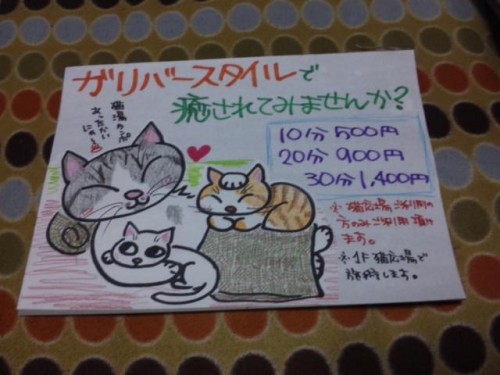 ガリバースタイルで
癒されてみませんか?
猫湯たんぽ
あったかい
にゃ～
10分 500円
20分 900円
30分 1,400円
※ 猫広場ご利用の
方のみご利用頂け
ます。
※1F 猫広場で
します。